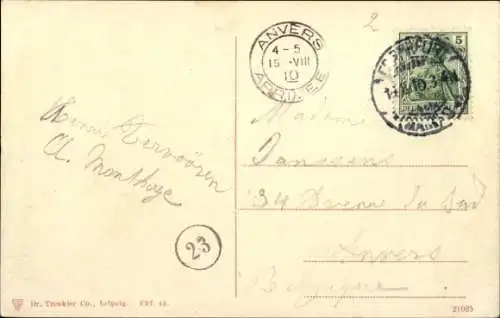 2
ANVERS
4 - 5
15 -VIII
10
ARRIVÉE
5
Henri
A. Monthaye
Madame
Janssens
34 Avenue du Sud
Anvers
Belgique
23
Dr. Trenkler Co., Leipzig. Fkf.
21025